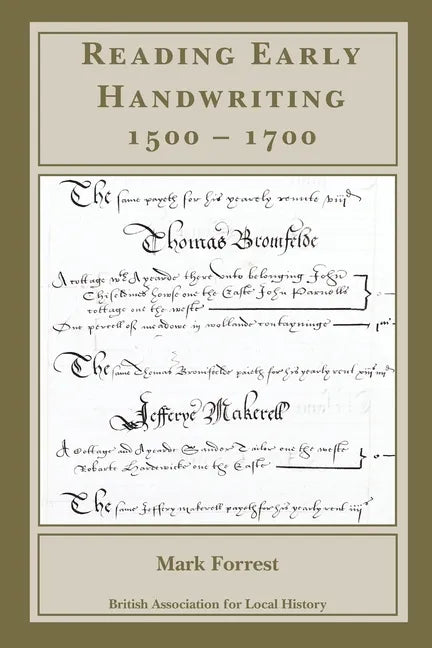 READING EARLY
HANDWRITING
1500 – 1700
The same payeth for his yearely rente viiid
Thomas Bromfelde
A cottage wth A yearde there unto belonging John
Chiselmes howse one the Easte John Parnolls
cottage one the weste
One percell of meadowe in wollande contayninge
The same Thomas Bromfelde paieth for his yearly rent xiiis iiiid
Jefferye Makerell
A Cottage and A yearde Sander Tailor one the weste
Robarte Hardewicke one the Easte
The same Jeffery makerell payeth for his yearly rent iiiis
Mark Forrest
British Association for Local History